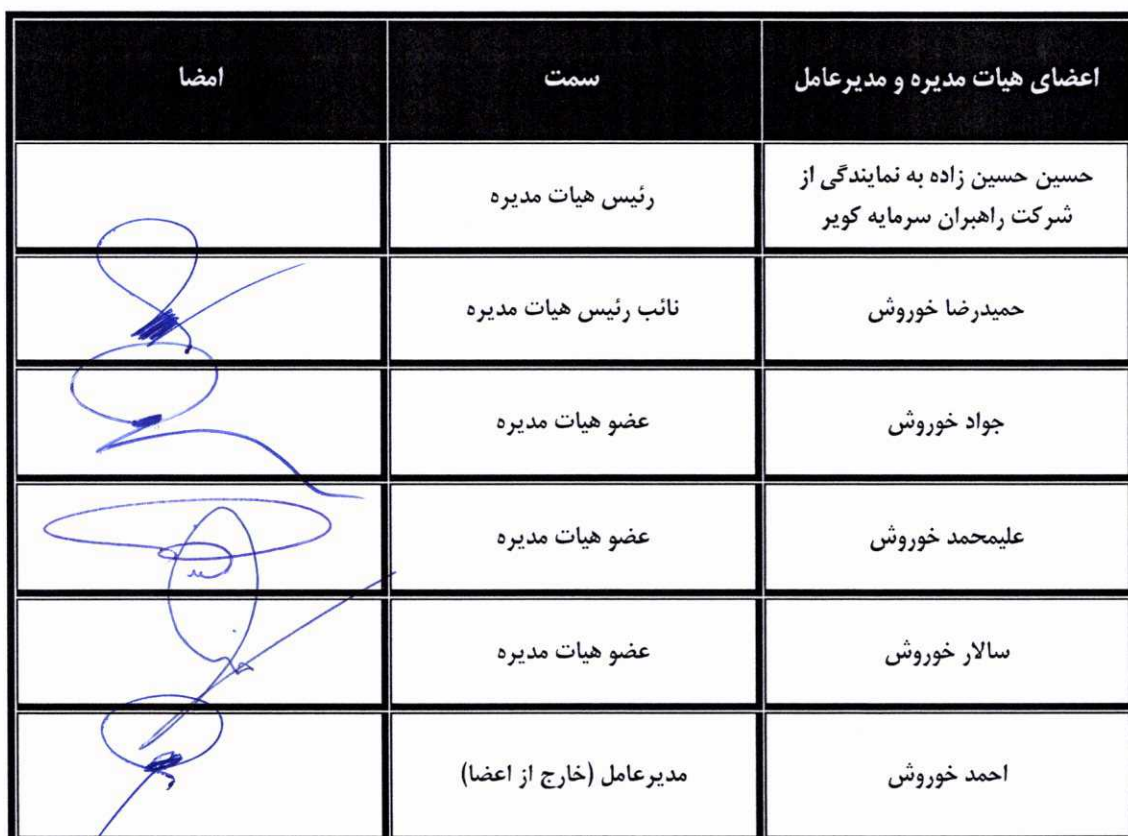 اعضای هیات مدیره و مدیرعامل
سمت
امضا
حسین حسین زاده به نمایندگی از
شرکت راهبران سرمایه کویر
رئیس هیات مدیره
حمیدرضا خوروش
نائب رئیس هیات مدیره
جواد خوروش
عضو هیات مدیره
علیمحمد خوروش
عضو هیات مدیره
سالار خوروش
عضو هیات مدیره
احمد خوروش
مدیرعامل (خارج از اعضا)